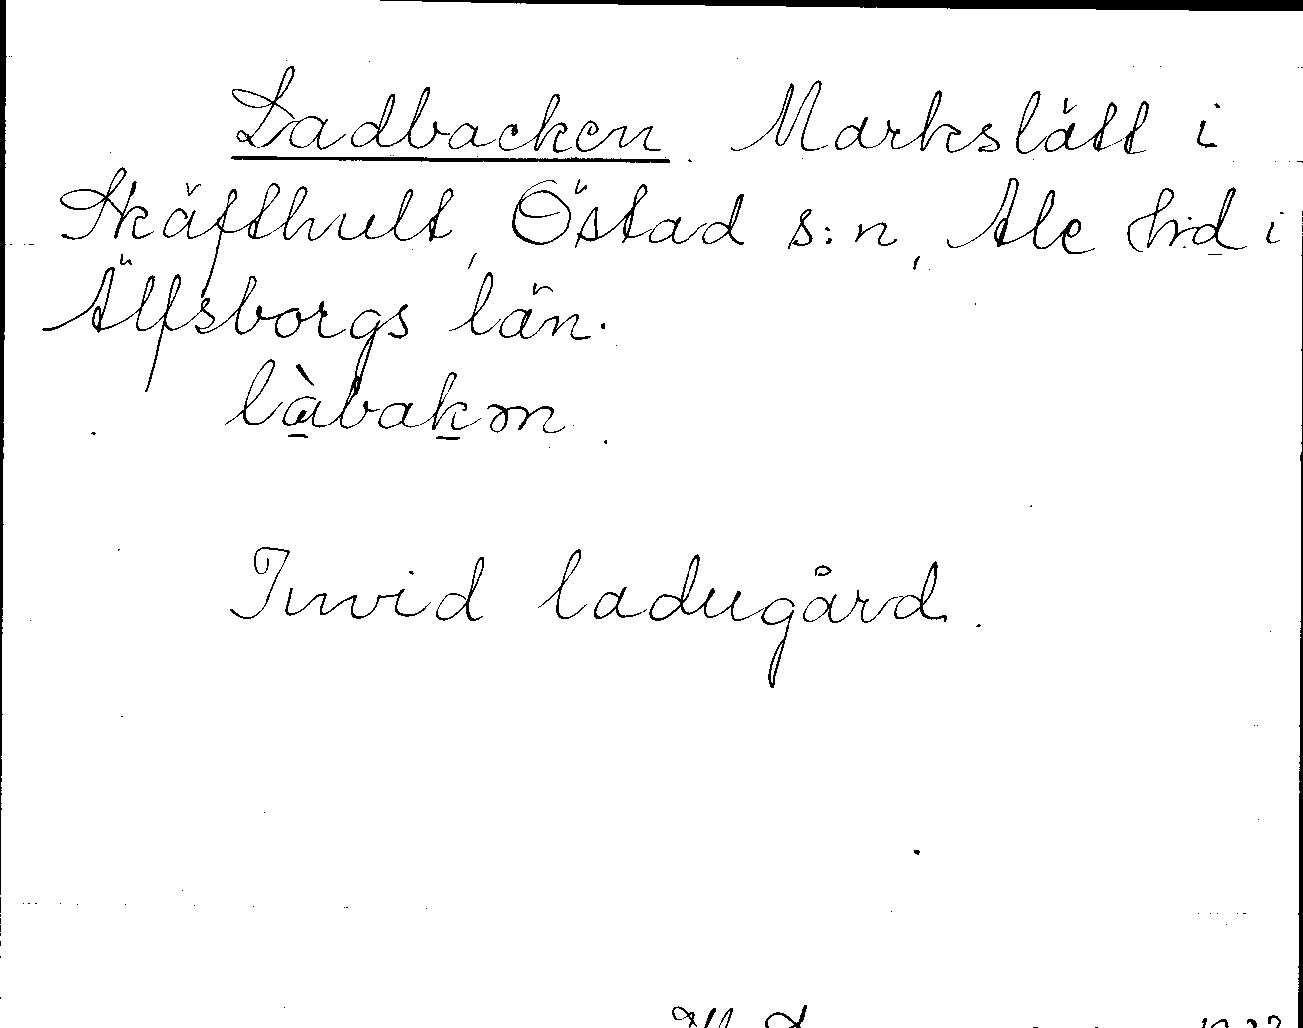 Ladbacken. Markslätt i
Skäfthult, Östad s:n, Ale hd i
Älfsborgs län.
làbakən.
Invid ladugård.